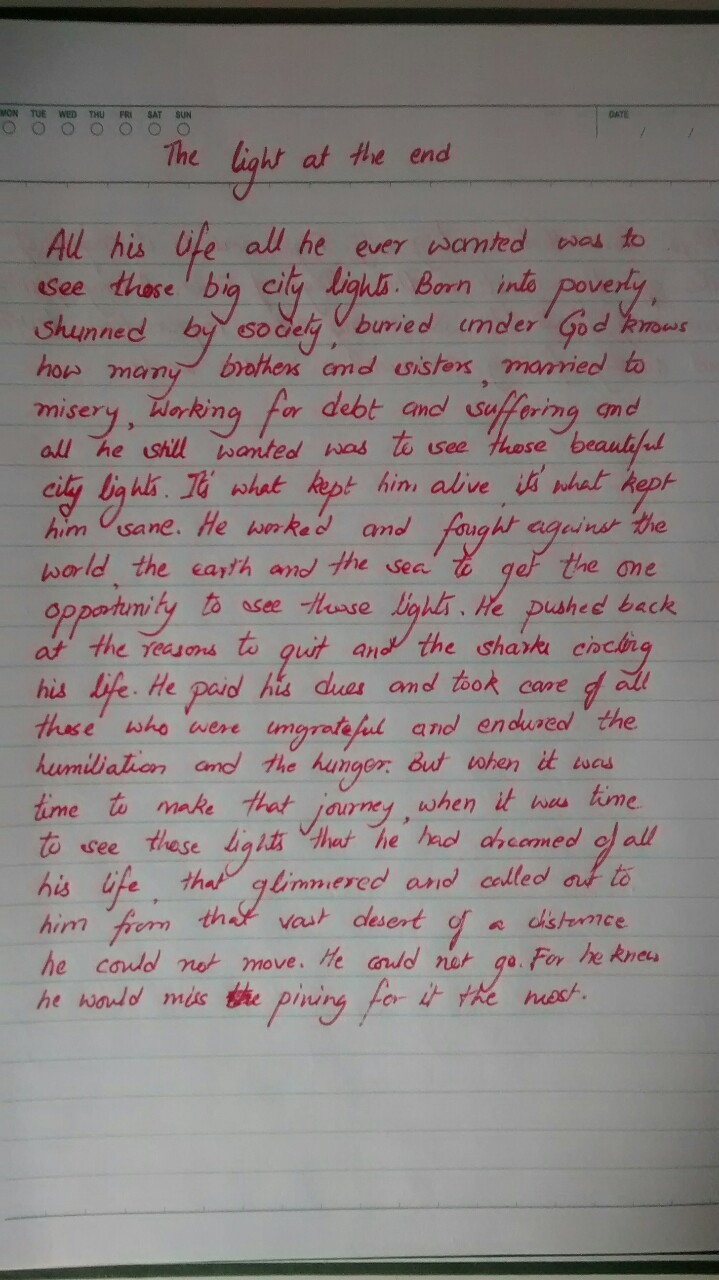 MON TUE WED THU FRI SAT SUN
DATE
/ /
The light at the end
All his life all he ever wanted was to
see those big city lights. Born into poverty,
shunned by society, buried under God knows
how many brothers and sisters, married to
misery, working for debt and suffering and
all he still wanted was to see those beautiful
city lights. It's what kept him alive, it's what kept
him sane. He worked and fought against the
world, the earth and the sea to get the one
opportunity to see those lights. He pushed back
at the reasons to quit and the sharks circling
his life. He paid his dues and took care of all
those who were ungrateful and endured the
humiliation and the hunger. But when it was
time to make that journey, when it was time
to see those lights that he had dreamed of all
his life, that glimmered and called out to
him from that vast desert of a distance
he could not move. He could not go. For he knew
he would miss the pining for it the most.